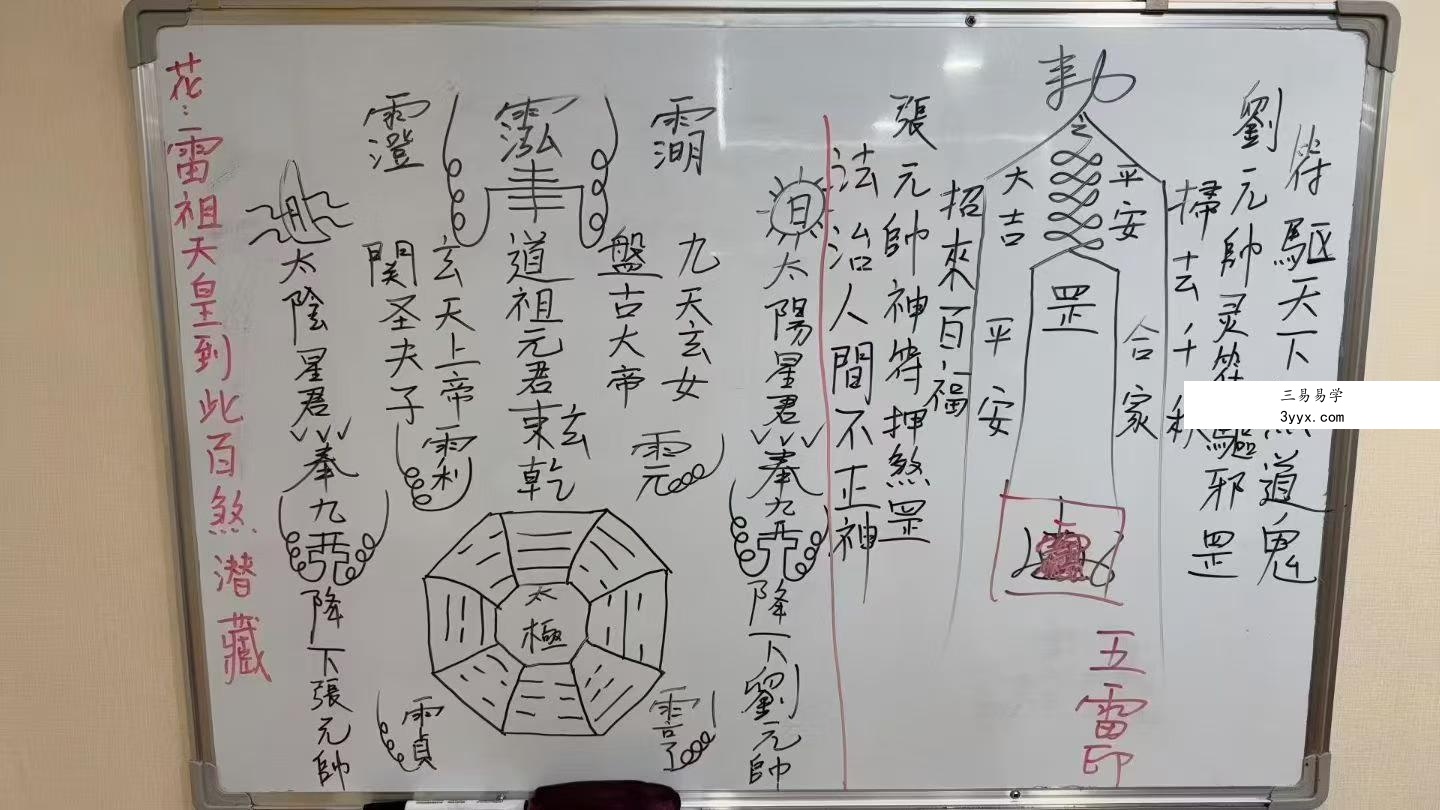 符驅天下
道鬼
劉元帥灵符驅邪罡
掃去千
敕
平安
大吉
罡
合家
平安
五雷印
招來百福
張元帥神符押煞罡
法治人間不正神
日
太陽星君
奉九
降下劉元帥
九天玄女
盤古大帝
道祖元君東玄乾
玄天上帝
関圣夫子
太極
月
太陰星君
奉九
降下張元帥
花:雷祖天皇到此百煞潜藏
三易易学
3yyx.com